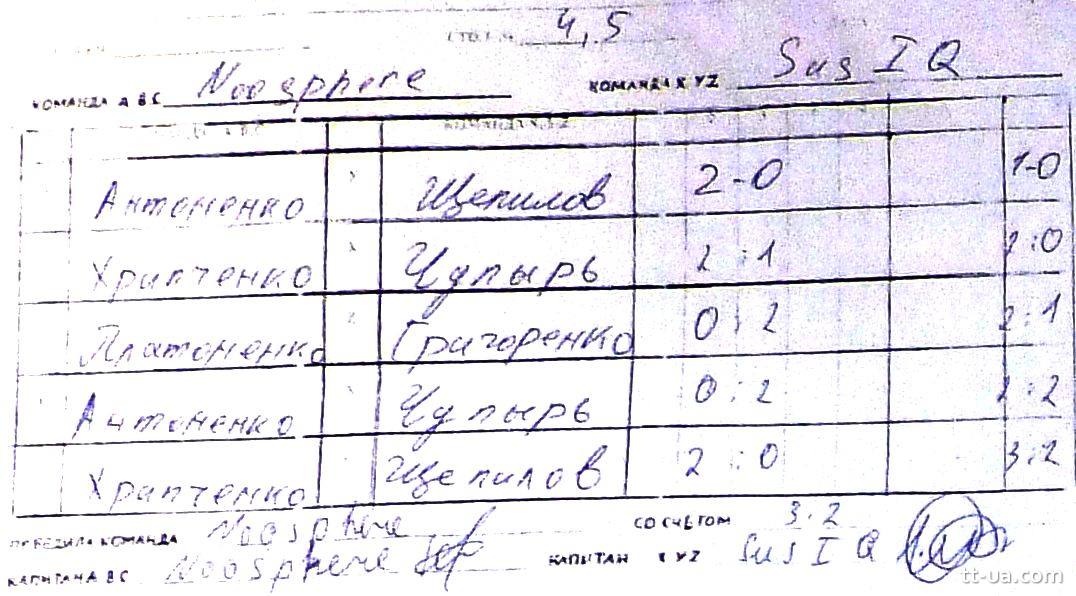 4,5
КОМАНДА А В С Noosphere КОМАНДА X YZ Sus I Q
КОМАНДА X Y Z
Антоненко Щепилов 2-0 1-0
Хрипченко Чупырь 2:1 2:0
Платоненко Григоренко 0:2 2:1
Антоненко Чупырь 0:2 2:2
Хрипченко Щепилов 2:0 3:2
ПОБЕДИЛА КОМАНДА Noosphere СО СЧЁТОМ 3:2
КАПИТАН А В С Noosphere КАПИТАН X YZ Sus I Q
tt-ua.com